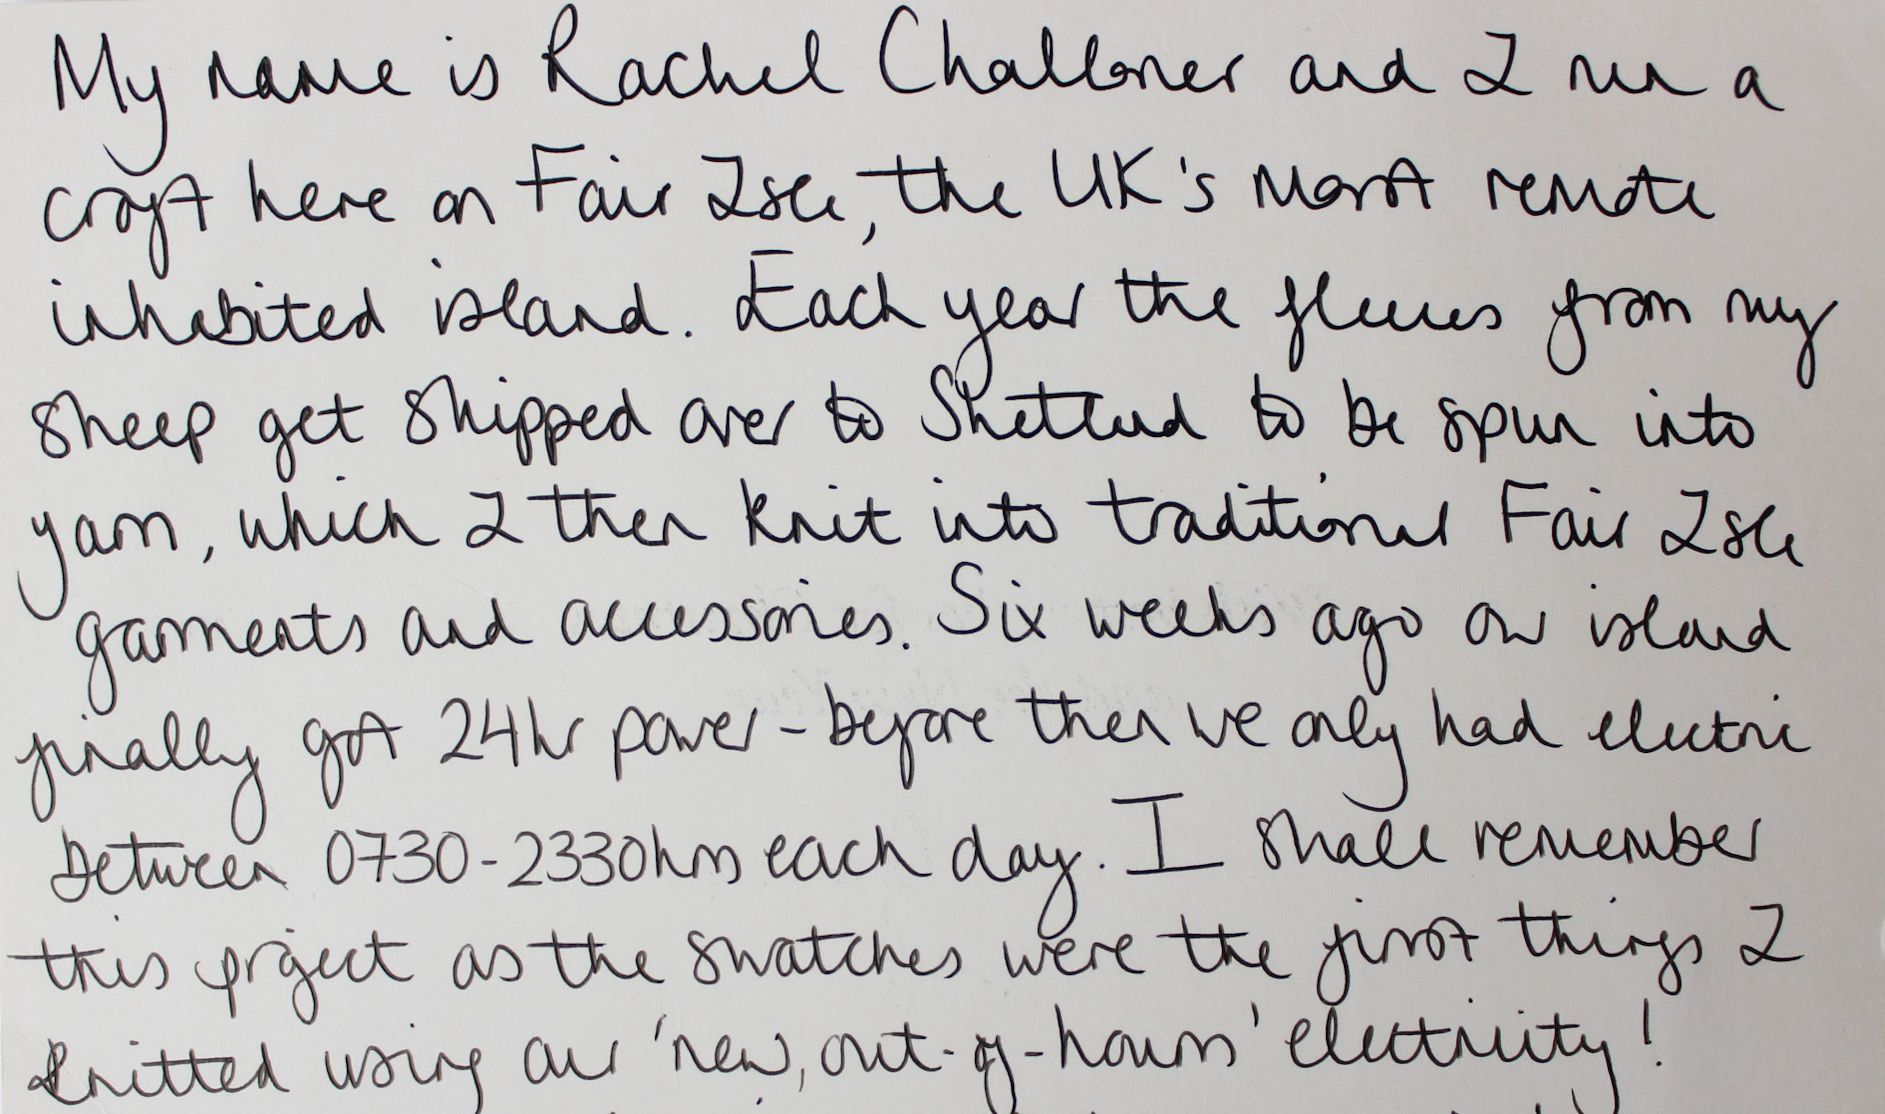 My name is Rachel Challoner and I run a
croft here on Fair Isle, the UK's most remote
inhabited island. Each year the fleeces from my
sheep get shipped over to Shetland to be spun into
yarn, which I then knit into traditional Fair Isle
garments and accessories. Six weeks ago our island
finally got 24hr power - before then we only had electric
between 0730-2330hrs each day. I shall remember
this project as the swatches were the first things I
knitted using our 'new, out-of-hours' electricity!